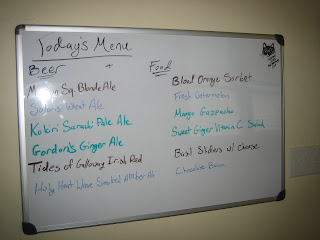 Today's Menu
Beer + Food
Madison Sq. Blonde Ale
Wheat Ale
Kokiri Sarachi Pale Ale
Gordon's Ginger Ale
Tides of Galloway Irish Red
Holy Heat Wave Smoked Amber Ale
Blood Orange Sorbet
Fresh Watermelon
Mango Gazpacho
Sweet Ginger Vitamin C Salad
Basil Sliders w/ cheese
Chocolate Bacon